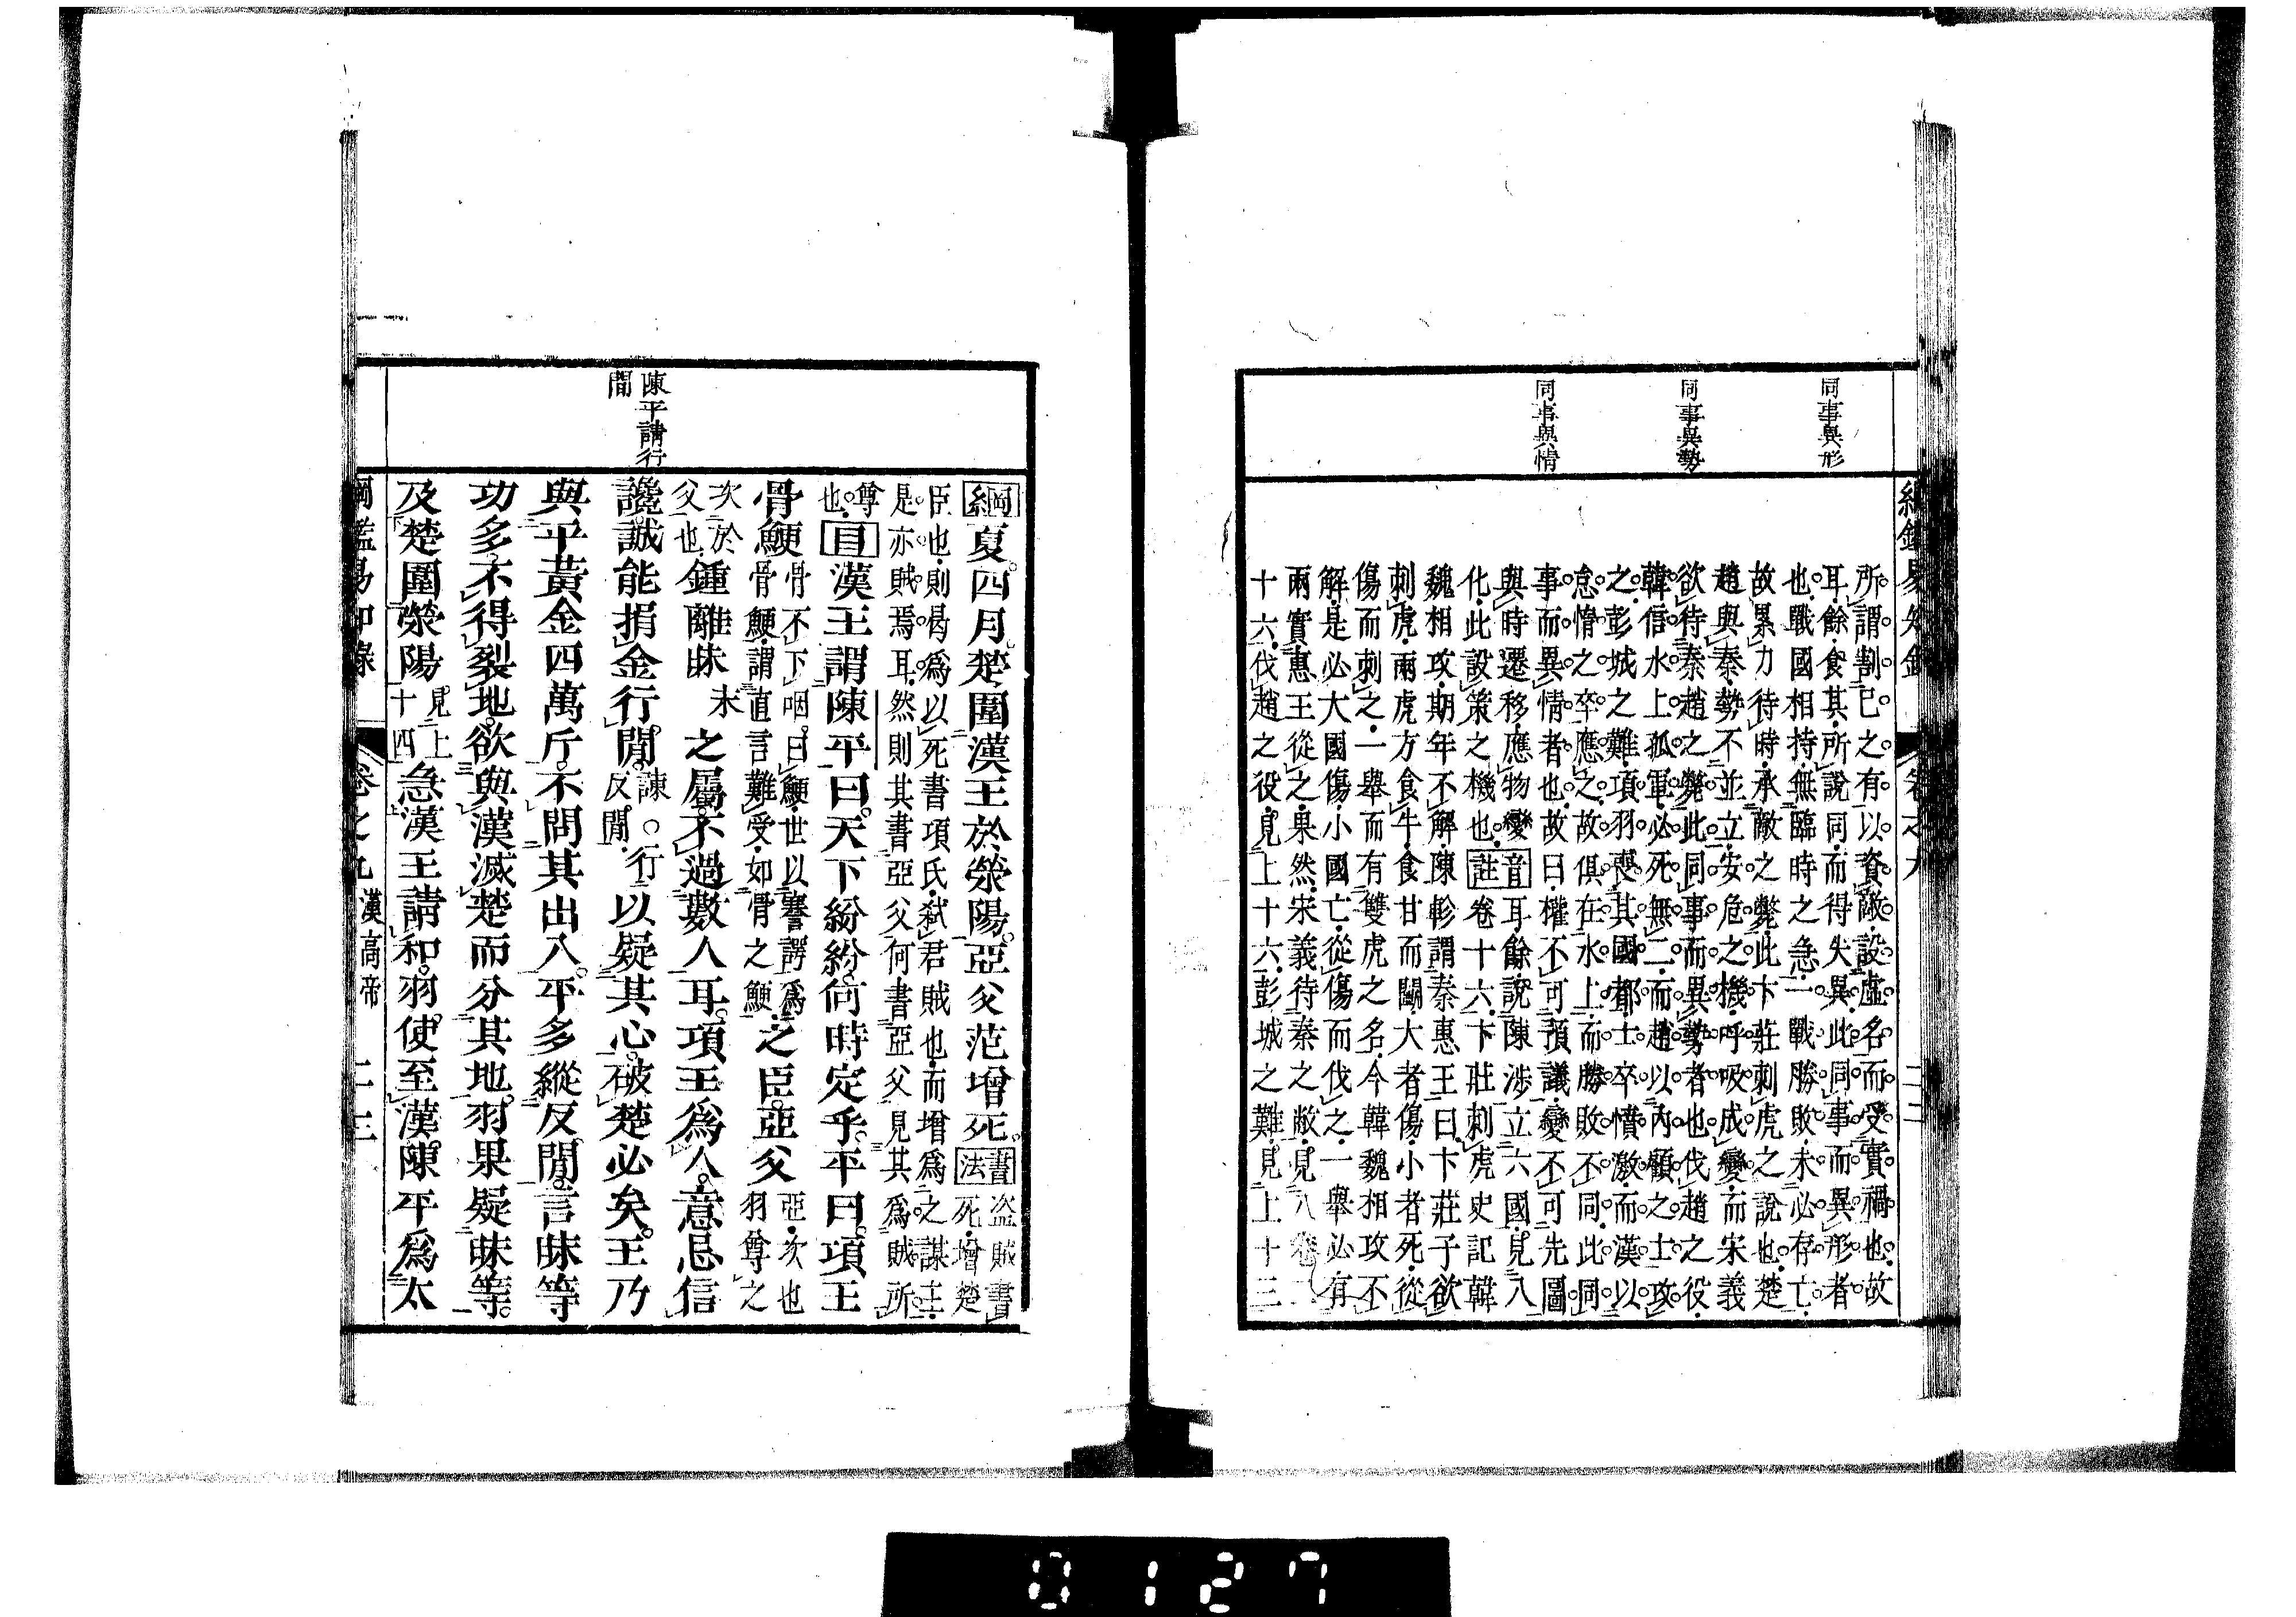 同事異形
同事異勢
同事異情
所謂割己之有以資敵設虛名而受實禍也故
耳餘食其所說同而得失異此同事而異形者
也戰國相持無臨時之急一戰勝敗未必存亡
故累力待時承敵之斃此卞莊刺虎之說也楚
趙與秦勢不並立安危之機呼吸成變而宋義
欲待秦趙之斃此同事而異勢者也伐趙之役
韓信水上孤軍必死無二而趙以內顧之士攻
之彭城之難項羽喪其國都士卒憤激而漢以
怠惰之卒應之故俱在水上而勝敗不同此同
事而異情者也故曰權不可預議變不可先圖
與時遷移應物變化此設策之機也
音註
耳餘說陳涉立六國見八卷
十六
卞莊刺虎史記韓
魏相攻期年不解陳軫謂秦惠王曰卞莊子欲
刺虎兩虎方食牛食甘而鬭大者傷小者死從
傷而刺之一舉而有雙虎之名今韓魏相攻不
解是必大國傷小國亡從傷而伐之一舉必有
兩實惠王從之果然宋義待秦之敝見八卷二
十六伐趙之役見上十六彭城之難見上十三
陳平請行
間
綱夏四月楚圍漢王於滎陽亞父范增死書法盗賊書死增楚
臣也則曷爲以死書項氏弒君賊也而增爲之謀主
是亦賊焉耳然則其書亞父何書亞父見其爲賊所
尊也目漢王謂陳平曰天下紛紛何時定乎平曰項王
骨鯁骨不下咽曰鯁世以謇諤爲骨鯁謂直言難受如骨之鯁之臣亞父亞次也羽尊之
次於父也鍾離昧末之屬不過數人耳項王爲人意忌信
讒誠能捐金行閒諫○行反閒以疑其心破楚必矣王乃
與平黃金四萬斤不問其出入平多縱反閒言昧等
功多不得裂地欲與漢滅楚而分其地羽果疑昧等
及楚圍滎陽見上十四急漢王請和羽使至漢陳平爲太
卷之九 漢高帝 二三